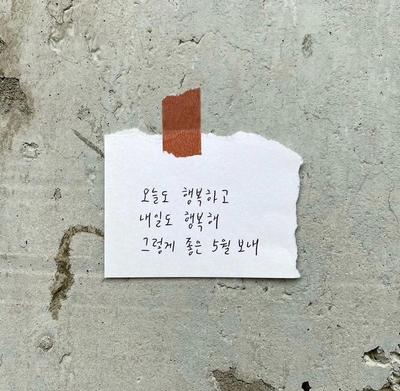 오늘도 행복하고
내일도 행복해
그렇게 좋은 5월 보내